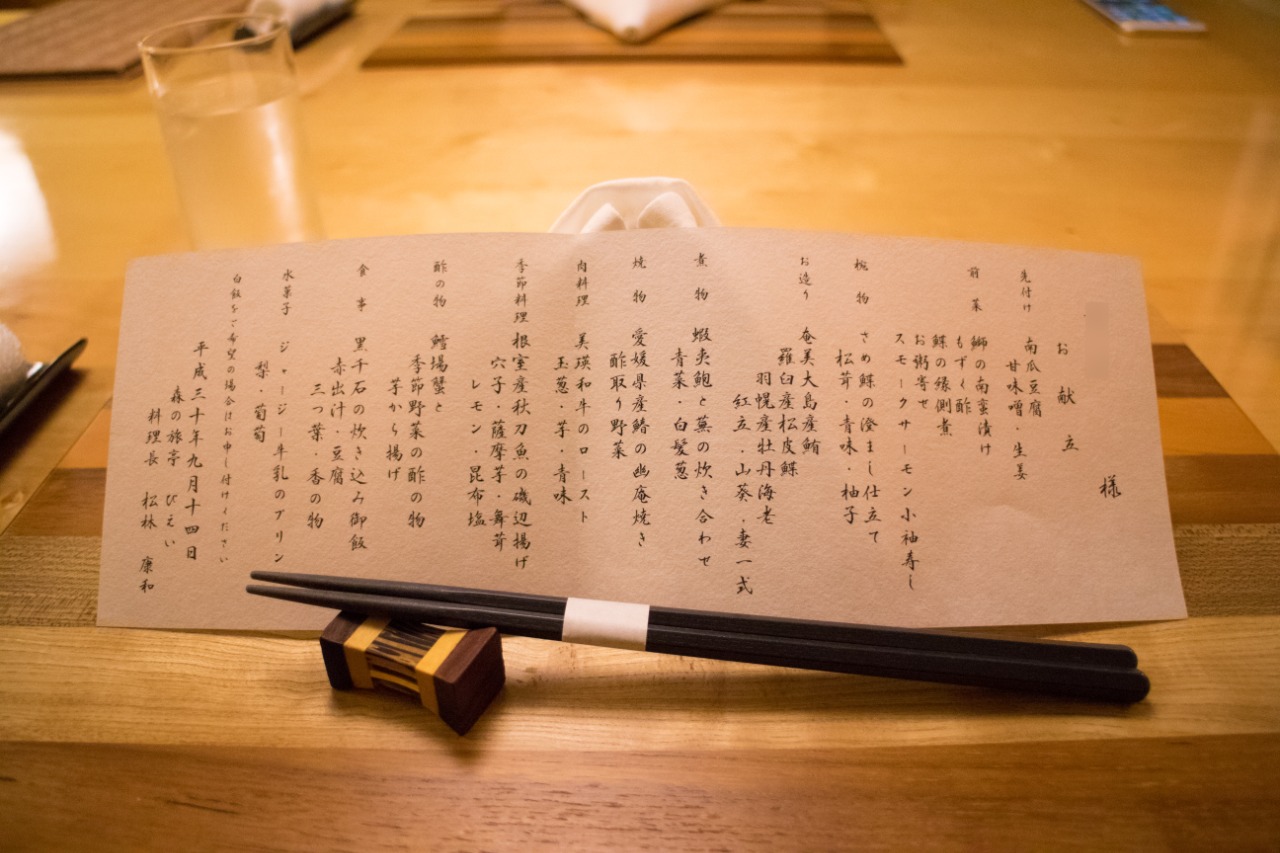 様
お献立
先付け 南瓜豆腐
甘味噌・生姜
前菜 鰤の南蛮漬け
もずく酢
鰈の縁側煮
お粥寄せ
スモークサーモン小袖寿し
椀物 さめ鰈の澄まし仕立て
松茸・青味・柚子
お造り 奄美大島産鮪
羅臼産松皮鰈
羽幌産牡丹海老
紅立・山葵・妻一式
煮物 蝦夷鮑と蕪の炊き合わせ
青菜・白髪葱
焼物 愛媛県産鰆の幽庵焼き
酢取り野菜
肉料理 美瑛和牛のロースト
玉葱・芋・青味
季節料理 根室産秋刀魚の磯辺揚げ
穴子・薩摩芋・舞茸
レモン・昆布塩
酢の物 鱈場蟹と
季節野菜の酢の物
芋から揚げ
食事 黒千石の炊き込み御飯
赤出汁・豆腐
三つ葉・香の物
水菓子 ジャージー牛乳のプリン
梨・葡萄
白飯をご希望の場合はお申し付けください
平成三十年九月十四日
森の旅亭 びえい
料理長 松林 康和